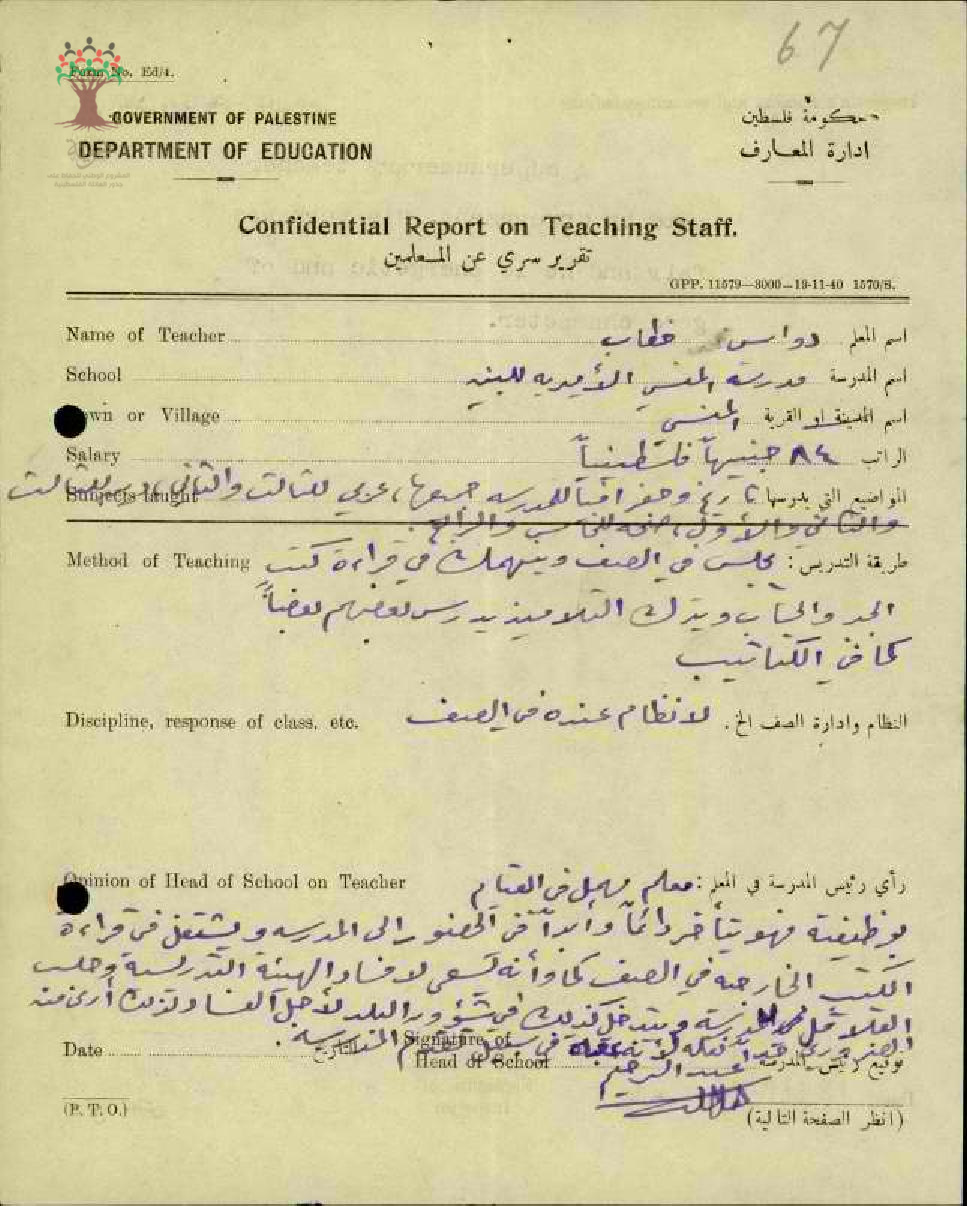 67
Form No. Ed/4.
GOVERNMENT OF PALESTINE
حكومة فلسطين
DEPARTMENT OF EDUCATION
ادارة المعارف
Confidential Report on Teaching Staff.
تقرير سري عن المعلمين
GPP. 11579—3000—19-11-40 1570/S.
Name of Teacher
اسم المعلم خطاب
School
اسم المدرسة مدرسة المنسي الأميرية للبنين
Town or Village
اسم المدينة او القرية المنسي
Salary
الراتب ٨٤ جنيهاً فلسطينياً
Subjects taught
المواضيع التي يدرسها تاريخ وجغرافيا للمدرسه جميعها، عربي للثالث والثاني،
والثاني والأول، والرابع.
Method of Teaching
طريقة التدريس: يجلس في الصف وينهمك في قراءة كتب
الجبر والحساب ويترك التلاميذ يدرس بعضهم بعضاً
كما في الكتاتيب
Discipline, response of class, etc.
النظام وادارة الصف الخ. لا نظام عنده في الصف
Opinion of Head of School on Teacher
رأي رئيس المدرسة في المعلم: معلم مهمل في القيام
بوظيفته فهو يتأخر دائماً وأبداً في الحضور الى المدرسه ويشتغل في قراءة
الكتب الخارجيه في الصف كما وأنه يسعى لافساد الهيئة التدريسية وجلب
القلاقل للمدرسة ويتدخل كذلك في شؤور البلد لأجل الفساد لذلك أرى من
الضروري جداً نقله لأنه عقبه في سبيل تقدم المدرسه.
Date
التاريخ
Signature of
Head of School
توقيع رئيس المدرسة عبد الرحيم
(P. T. O.)
(انظر الصفحة التالية)